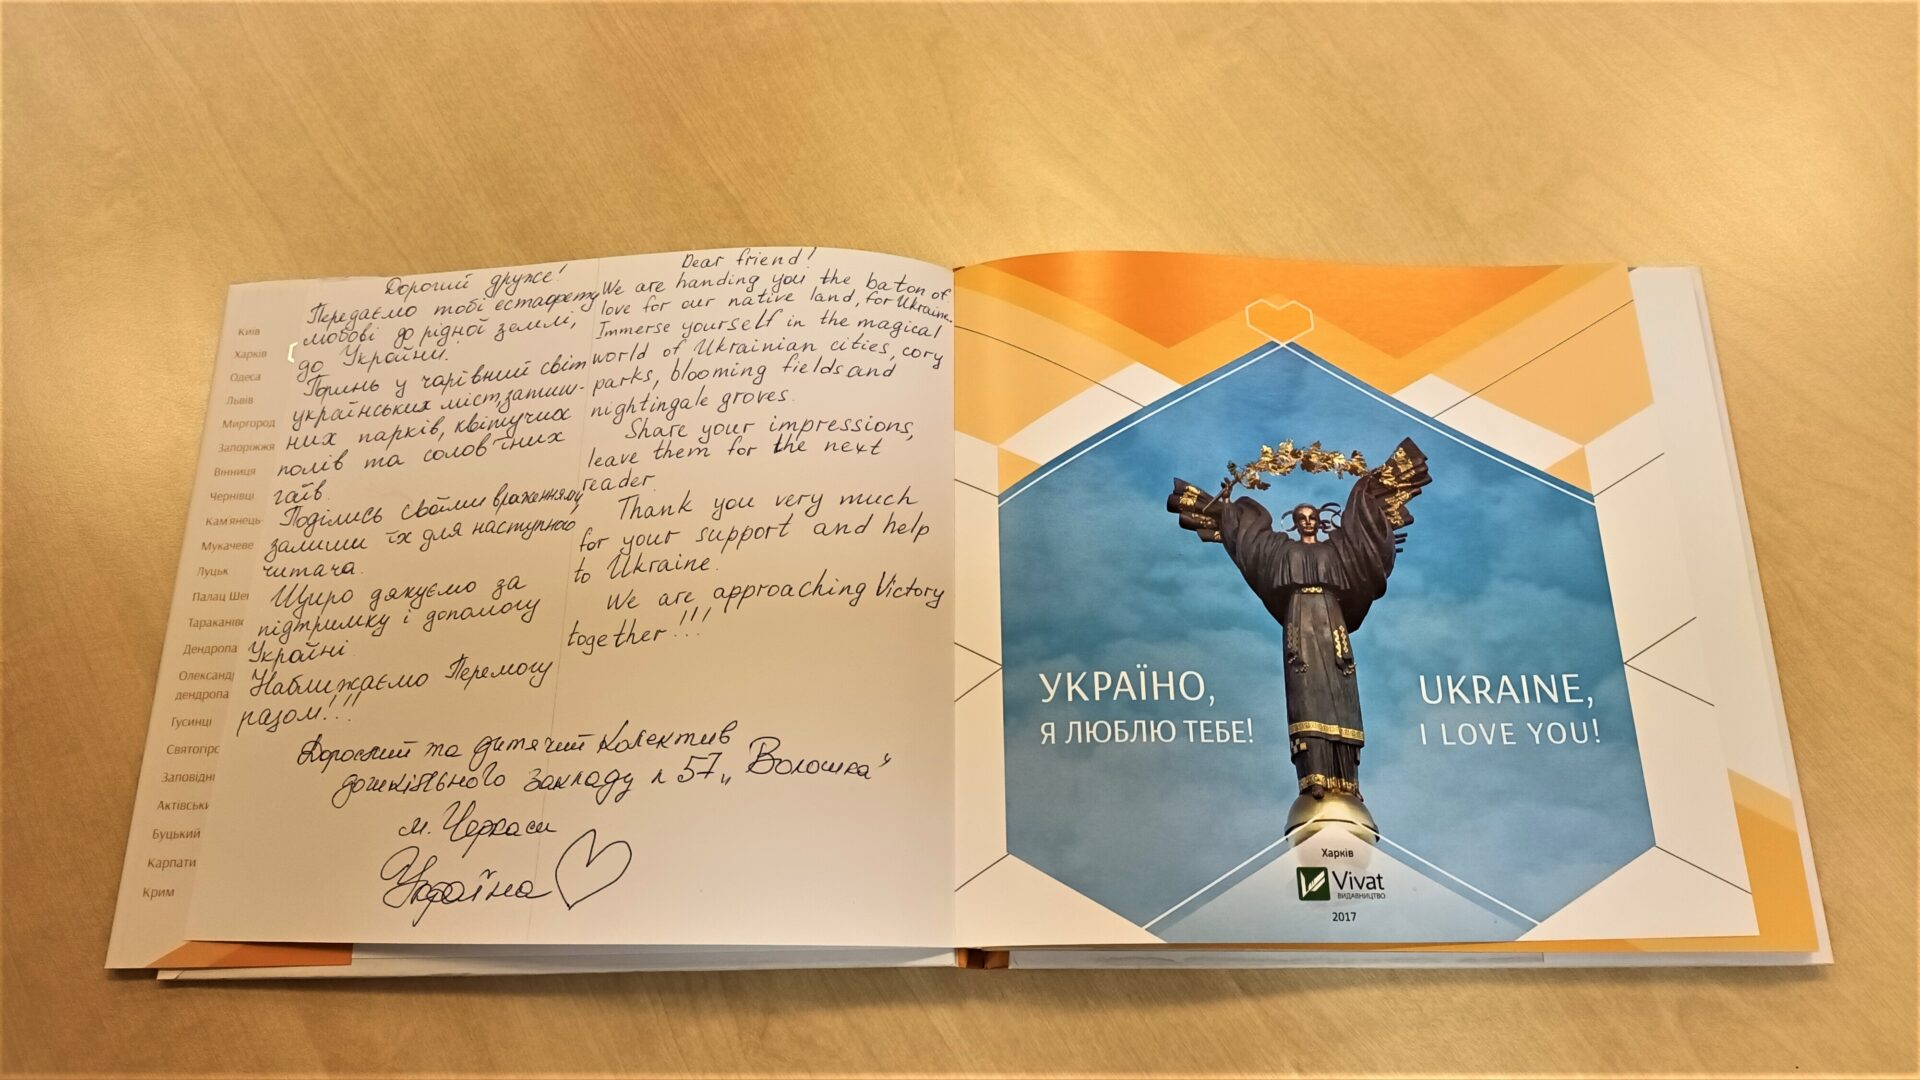 Київ
Харків
Одеса
Львів
Миргород
Запоріжжя
Вінниця
Чернівці
Кам'янець-
Мукачеве
Луцьк
Палац Ше
Тараканівс
Дендропа
Олександ
дендропа
Гусинці
Святогірс
Заповідн
Актівськ
Буцький
Карпати
Крим
Дорогий друже!
Передаємо тобі естафету
любові до рідної землі,
до України!
Поринь у чарівний світ
українських міст, затиш-
них парків, квітучих
полів та солов'їних
гаїв.
Поділись своїми враженнями,
залиши їх для наступного
читача.
Щиро дякуємо за
підтримку і допомогу
Україні.
Наближаємо Перемогу
разом!!!
Dear friend!
We are handing you the baton of
love for our native land, for Ukraine.
Immerse yourself in the magical
world of Ukrainian cities, cory
parks, blooming fields and
nightingale groves.
Share your impressions,
leave them for the next
reader.
Thank you very much
for your support and help
to Ukraine.
We are approaching Victory
together!!!
Дорослий та дитячий колектив
дошкільного закладу 57 „Волошка"
м. Черкаси
Україна
УКРАЇНО,
Я ЛЮБЛЮ ТЕБЕ!
UKRAINE,
I LOVE YOU!
Харків
Vivat
ВИДАВНИЦТВО
2017